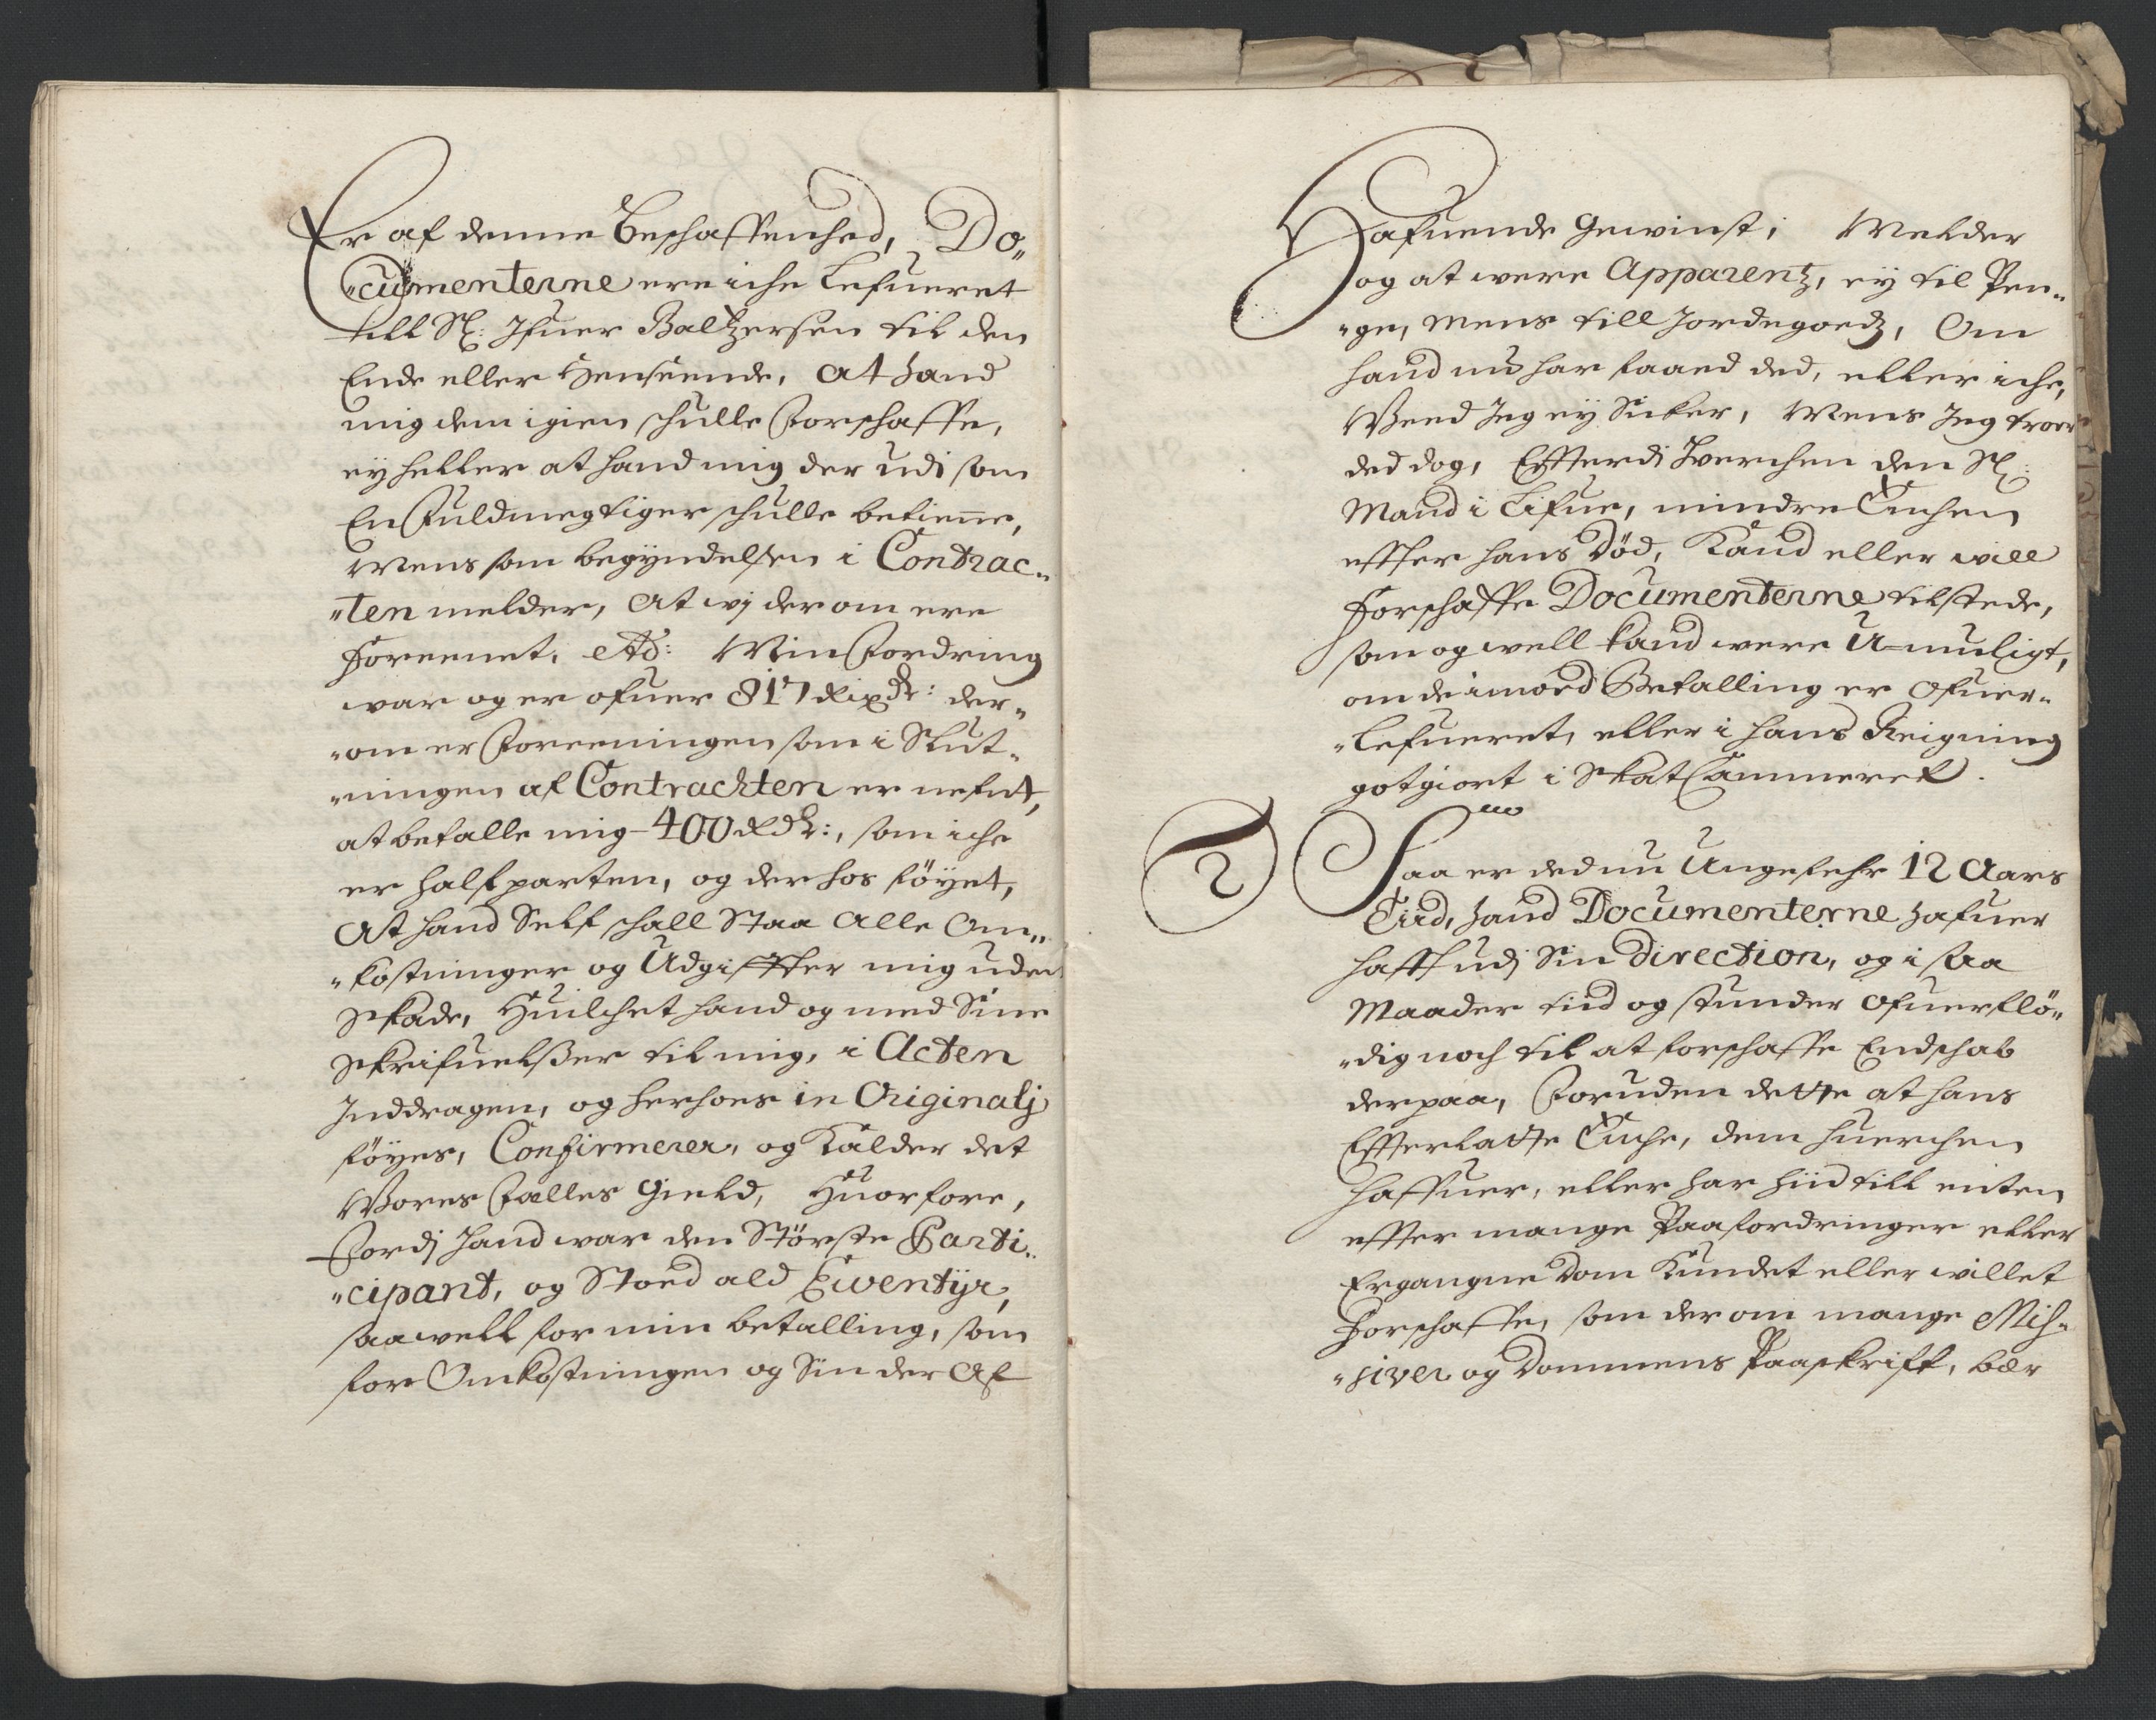 Er af denne beschaffenhed, Do„
„cumenterne ere iche lefueret
till Sl: Ifuer Baltzersen til den
Ende eller Henseende, at hand
mig dem igien schulle forschaffe,
ey heller at hand mig der udi som
En fuldmegtiger schulle betiene,
Mens som begyndelsen i Contrac„
„ten melder, at wj derom ere
foreenet, etc: Min fordring
war og er ofuer 817 Rixdr: der„
„om er foreeningen som i Slut„
„ningen af Contrachten er nefnt,
at betalle mig 400 Rdr:, som iche
er halfparten, og der hos föyet,
at hand Self schall Staa alle Om„
„kostninger og Udgiffter mig uden
Skade, Huilchet hand og med Sine
Skrifuelßer til mig, i Acten
Inddragen, og herhoes in Originalj
föyes, Confirmerer, og Kalder det
Wores falles gield, Huorfore,
fordj hand war den Störste Parti„
„cipant, og Stoed ald Ewentÿr,
saa well for min betalling, som
for Omkostningen og Sin der af
Hafuende gewinst; Melder
og at were Apparentz, ey til Pen„
„ge, Mens till Jordegoedz, Om
hand nu har faaed ded, eller iche,
Weed Jeg ey Sicker, Mens Jeg troer
ded dog, Efterdj Hverchen den Sl:
Mand i Lifue, mindre Enchen
effter hans Död, Kand eller will
forschaffe Documenterne tilstede,
som og well kand were U-muligt,
om de imod Betalling er ofuer„
„lefueret, eller i hans Reigning
gotgiort i SkatCammeret.
2
mo
Saa er ded nu Ungefehr 12 Aars
Tiid, hand Documenterne hafuer
hafft udj Sin Direction, og i saa
Maader tiid og stunder ofuerflö„
„dig noch til at forschaffe Endschab
derpaa, foruden dette at hans
Effterlatte Enche, dem huerchen
haffuer, eller har hiid till enten
effter mange Paafordringer eller
Ergangne Dom Kundet eller willet
forschaffe, som der om mange Mis„
„siver og Dommens Paaskrift, bær